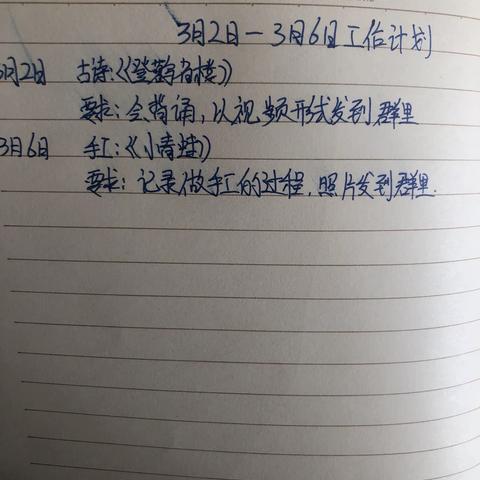 3月2日—3月6日工作计划
3月2日 古诗:《登鹳雀楼》
要求:会背诵,以视频形式发到群里
3月6日 手工:《小青蛙》
要求:记录做手工的过程,照片发到群里.